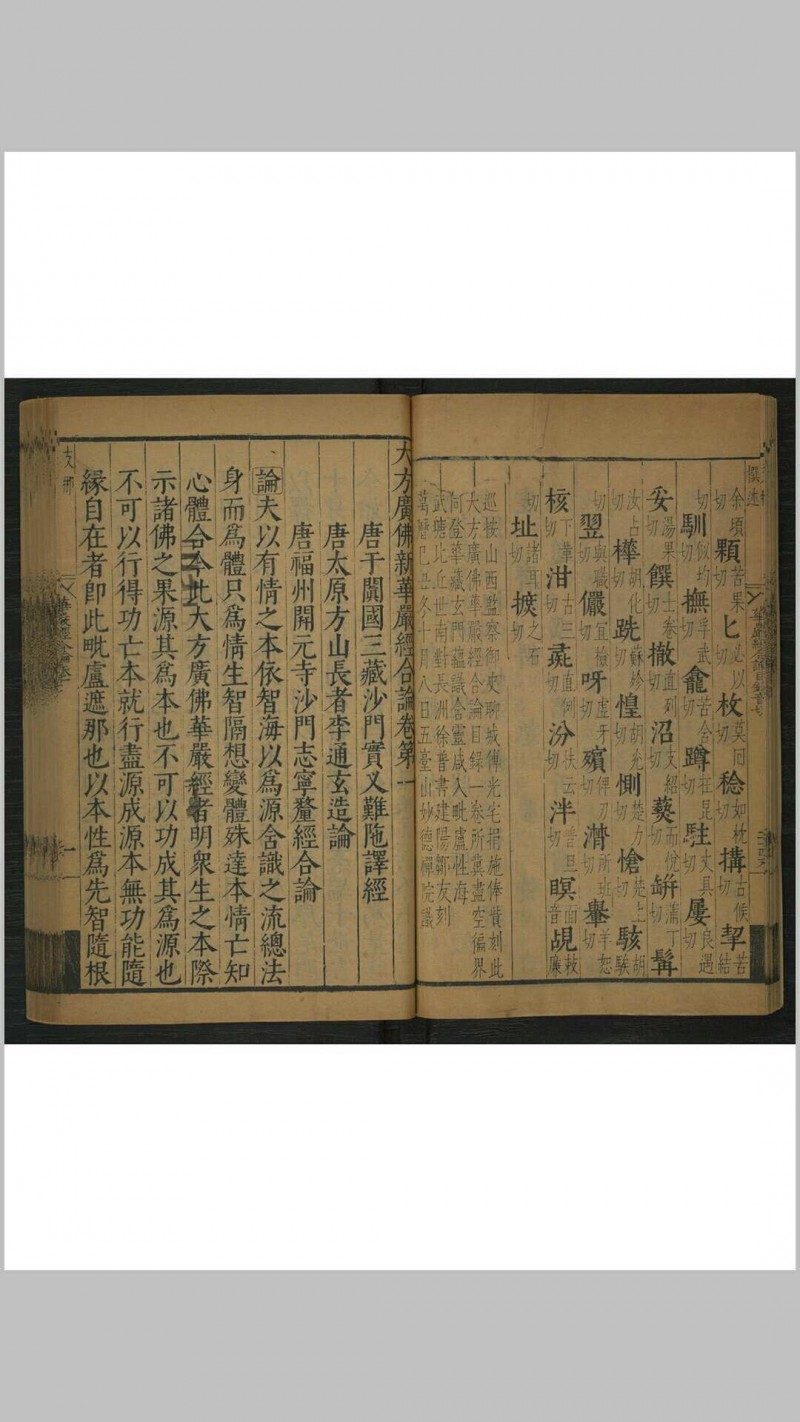 切余頃顆切苦果匕切必以枚切莫回稔切如枕搆切古候挈結苦
切馴切似均撫切孚武龕切苦含蹲切徂昆駐切丈具屢切良遇
妥切湯果饌切士卷撤切直列沼切支紹爇切而悅缾切蒲丁髯
切汝占樺切胡化跣切蘇殄惶切胡光惻切楚力愴切楚上駭切胡騃
切翌切與職儼切宜檢呀切虛牙殯切俾刀潸切所班轝切羊恕
核切下革泔切古三切直何汾切扶云泮切普旦瞑音面覘廉敕
切址切諸耳摭切之石
巡按山西監察御史聊城傅光宅捐施俸貲刻此
大方廣佛華嚴經合論目錄一卷所冀盡空徧界
同登華藏玄門蘊識含靈咸入毗盧性海
武塘比丘世南對長洲徐普書建陽鄒友刻
萬曆己丑冬十月八日五臺山妙德禪院識
大方廣佛新華嚴經合論卷第一
唐于闐國三藏沙門實叉難陁譯經
唐太原方山長者李通玄造論
唐福州開元寺沙門志寧釐經合論
論夫以有情之本依智海以為源含識之流總法
身而為體只為情生智隔想變體殊達本情亡知
心體合今此大方廣佛華嚴經者明衆生之本際
示諸佛之果源其為本也不可以功成其為源也
不可以行得功亡本就行盡源成源本無功能隨
緣自在者卽此毗盧遮那也以本性為先智隨根
支那